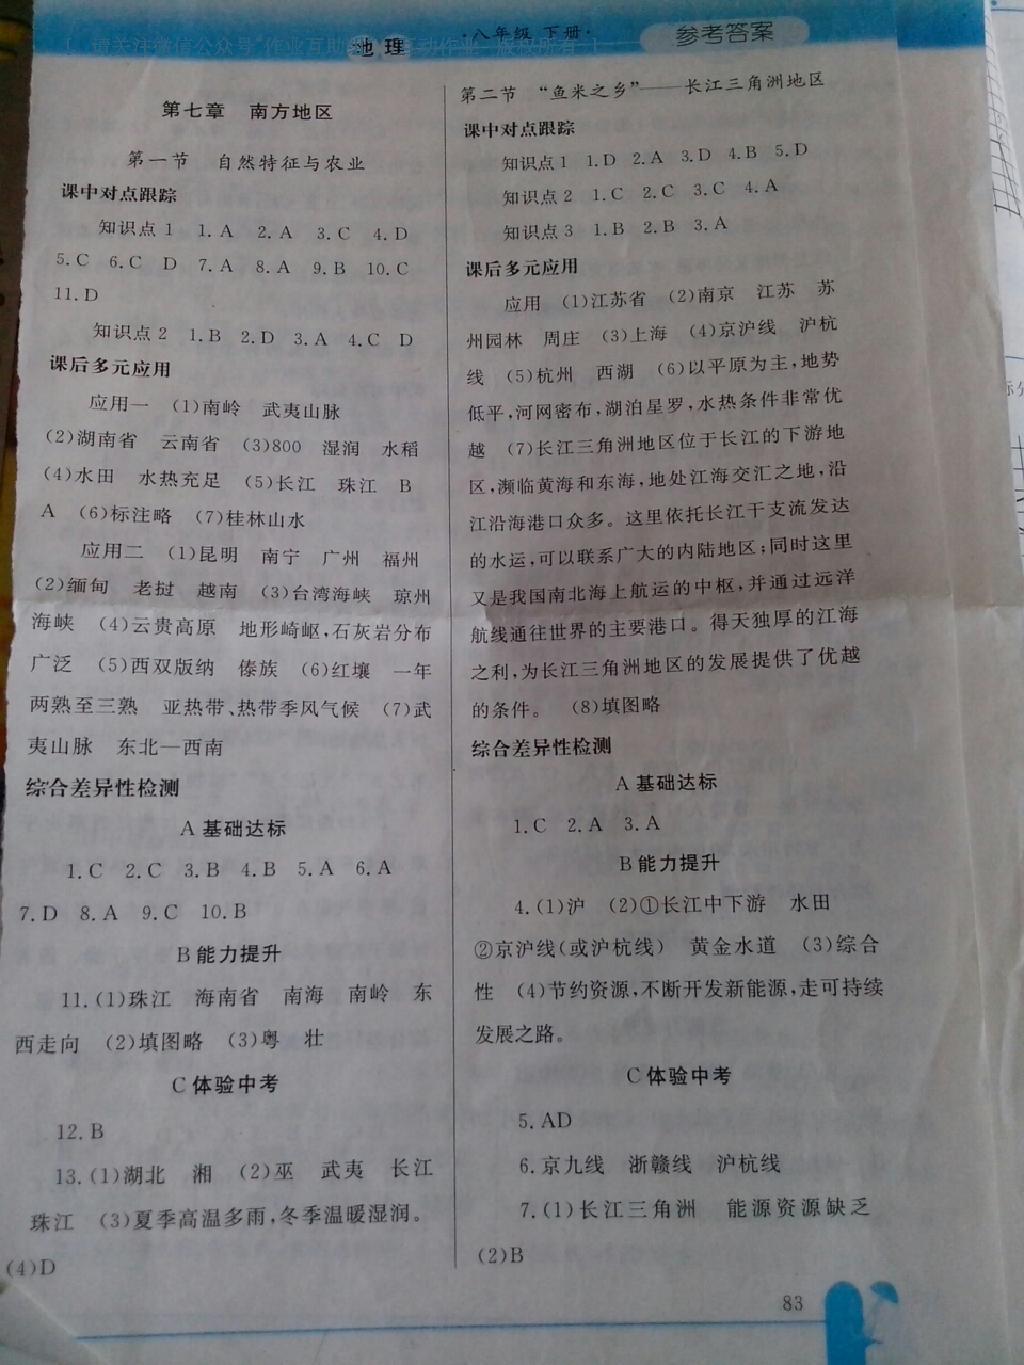 地理
·八年级 下册·
参考答案
第七章 南方地区
第一节 自然特征与农业
课中对点跟踪
知识点1 1.A 2.A 3.C 4.D
5.C 6.C D 7.A 8.A 9.B 10.C
11.D
知识点2 1.B 2.D 3.A 4.C D
课后多元应用
应用一 (1)南岭 武夷山脉
(2)湖南省 云南省 (3)800 湿润 水稻
(4)水田 水热充足 (5)长江 珠江 B
A (6)标注略 (7)桂林山水
应用二 (1)昆明 南宁 广州 福州
(2)缅甸 老挝 越南 (3)台湾海峡 琼州
海峡 (4)云贵高原 地形崎岖,石灰岩分布
广泛 (5)西双版纳 傣族 (6)红壤 一年
两熟至三熟 亚热带、热带季风气候 (7)武
夷山脉 东北—西南
综合差异性检测
A 基础达标
1.C 2.C 3.B 4.B 5.A 6.A
7.D 8.A 9.C 10.B
B 能力提升
11.(1)珠江 海南省 南海 南岭 东
西走向 (2)填图略 (3)粤 壮
C 体验中考
12.B
13.(1)湖北 湘 (2)巫 武夷 长江
珠江 (3)夏季高温多雨,冬季温暖湿润。
(4)D
第二节 “鱼米之乡”——长江三角洲地区
课中对点跟踪
知识点1 1.D 2.A 3.D 4.B 5.D
知识点2 1.C 2.C 3.C 4.A
知识点3 1.B 2.B 3.A
课后多元应用
应用 (1)江苏省 (2)南京 江苏 苏
州园林 周庄 (3)上海 (4)京沪线 沪杭
线 (5)杭州 西湖 (6)以平原为主,地势
低平,河网密布,湖泊星罗,水热条件非常优
越 (7)长江三角洲地区位于长江的下游地
区,濒临黄海和东海,地处江海交汇之地,沿
江沿海港口众多。这里依托长江干支流发达
的水运,可以联系广大的内陆地区;同时这里
又是我国南北海上航运的中枢,并通过远洋
航线通往世界的主要港口。得天独厚的江海
之利,为长江三角洲地区的发展提供了优越
的条件。 (8)填图略
综合差异性检测
A 基础达标
1.C 2.A 3.A
B 能力提升
4.(1)沪 (2)①长江中下游 水田
②京沪线(或沪杭线) 黄金水道 (3)综合
性 (4)节约资源,不断开发新能源,走可持续
发展之路。
C 体验中考
5.AD
6.京九线 浙赣线 沪杭线
7.(1)长江三角洲 能源资源缺乏
(2)B
83